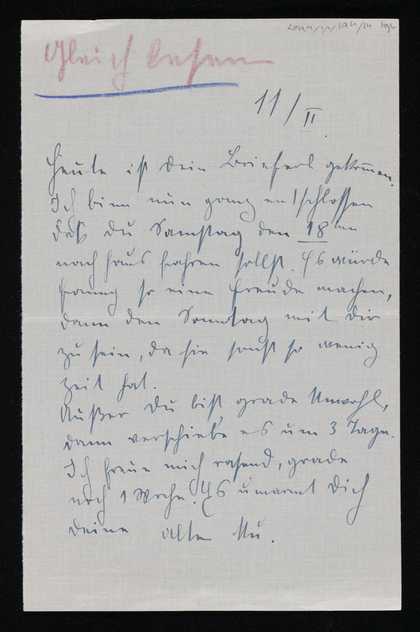 Gleich lesen
11/II.
Heute ist Dein Brieferl gekommen.
Ich binn nun ganz entschlossen
daß Du Samstag den 18ten
nach Haus fahren sollst. Es würde
so eine Freude machen,
dann den Sonntag mit Dir
zu sein, da sie sonst so wenig
Zeit hat.
Außer Du bist grade Unwohl,
dann verschiebe es um 3 Tage.
Ich freue mich rasend, grade
noch 1 Woche. Es umarmt Dich
Deine alte Mu.